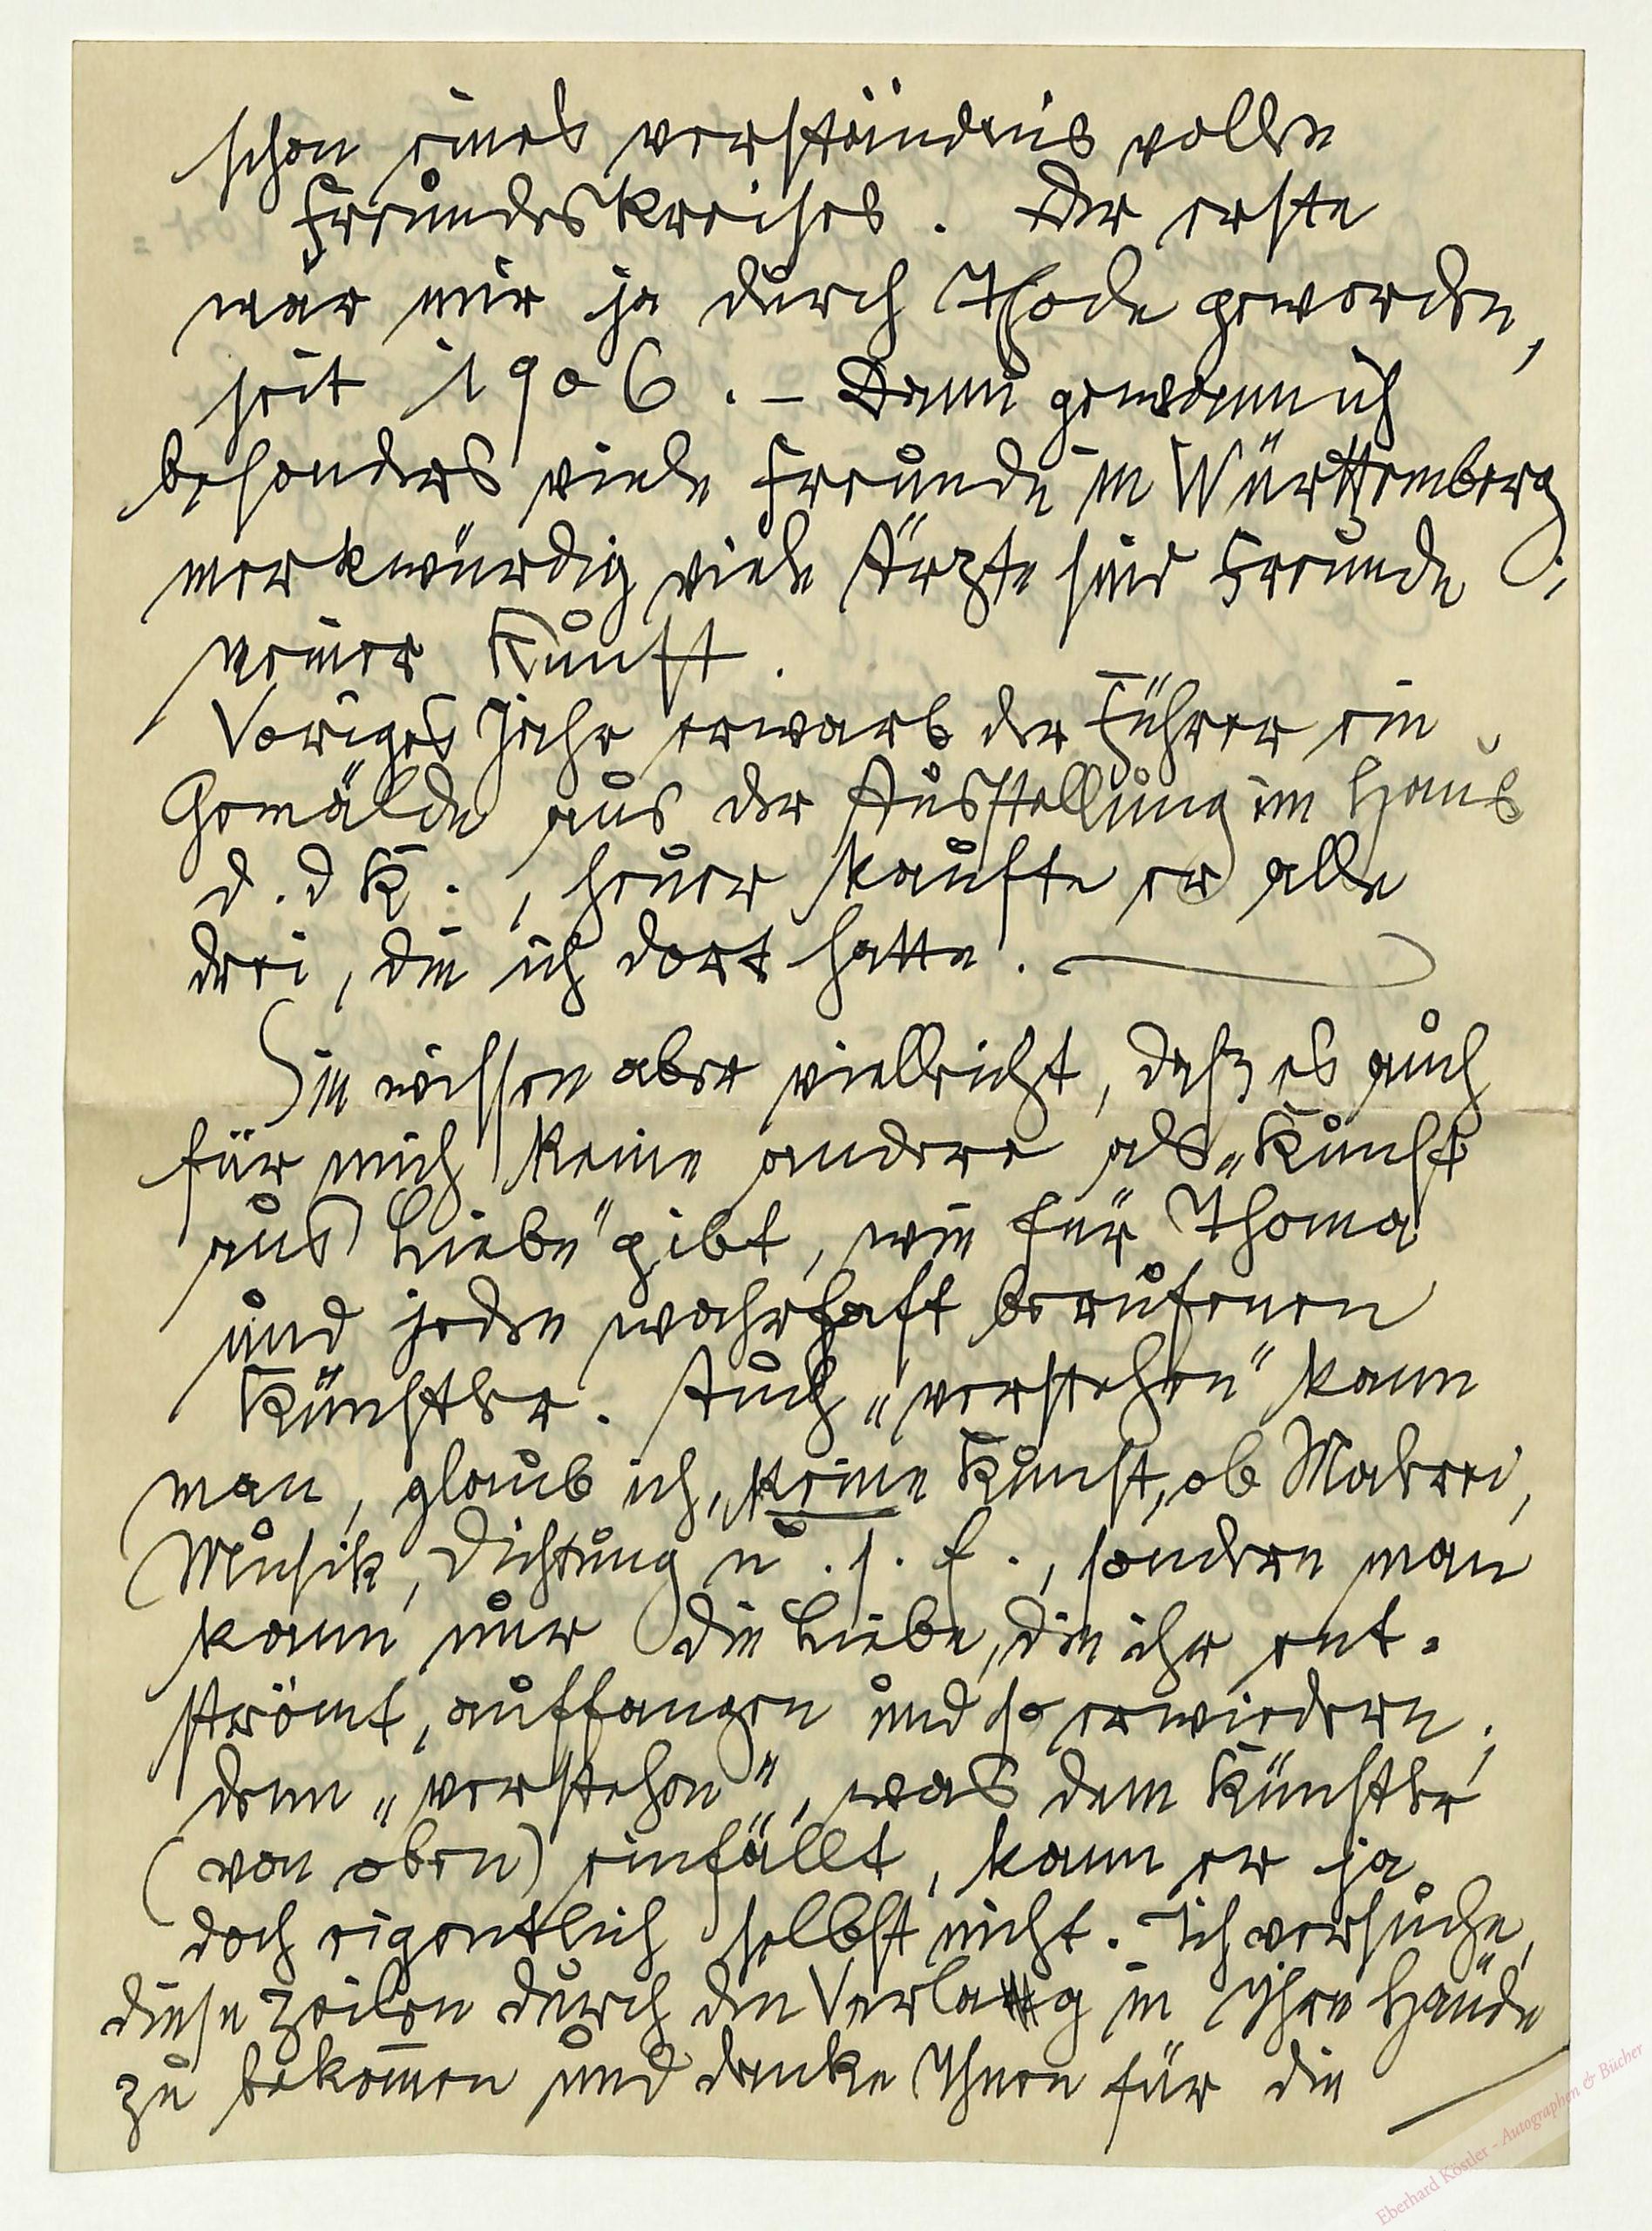 schon eines verständnis volle
Freundeskreises. Der erste
war mir ja durch Thode geworden,
seit 1906. – Dann gewann ich
besonders viele Freunde in Württemberg;
merkwürdig viele Ärzte sind Freunde
meiner Kunst.
Voriges Jahr erwarb der Führer ein
Gemälde aus der Ausstellung im Haus
d. d K., heuer kaufte er alle
drei, die ich dort hatte. —
Sie wissen aber vielleicht, daß es auch
für mich keine andere als „Kunst
aus Liebe" gibt, wie für Thoma
und jeden wahrhaft berufenen
Künstler. Auch „verstehen" kann
man, glaub ich, keine Kunst, ob Malerei,
Musik, Dichtung u. s. f., sondern man
kann nur die Liebe, die ihr ent-
strömt, auffangen und so erwiedern;
denn „verstehen", was dem Künstler
(von oben) einfällt, kann er ja
doch eigentlich selbst nicht. Ich versuche,
diese Zeilen durch den Verlag in Ihre Hände
zu bekom̄en und danke Ihnen für die
Eberhard Köstler - Autographen & Bücher